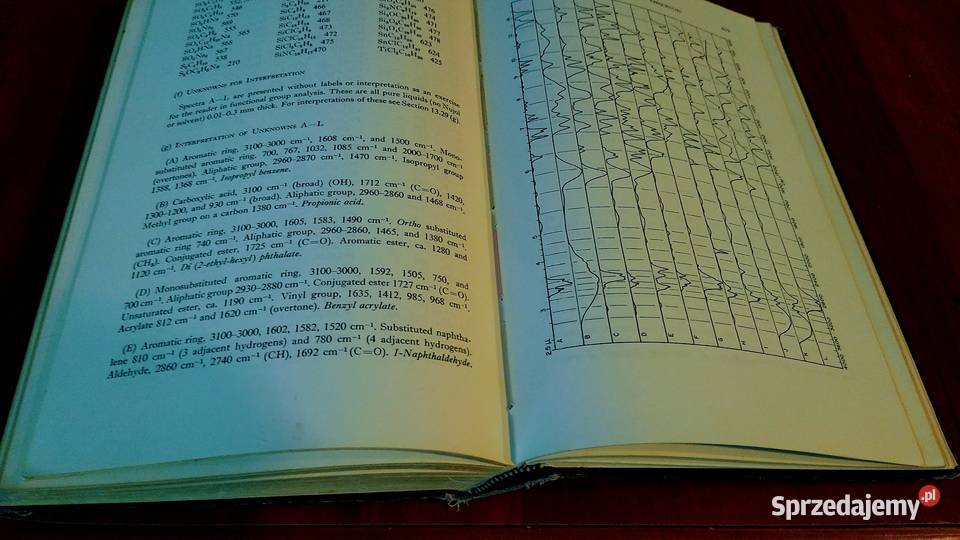 SO₂N₂ 569
555
565
SO₃HNa 566
567
538
S₂OC₃H₅Na 210
466
467
468
473
472
475
470
476
474
471
477
478
623
624
425
(f) Unknowns for Interpretation
Spectra A—L are presented without labels or interpretation as an exercise
for the reader in functional group analysis. These are all pure liquids (no Nujol
or solvent) 0.01–0.3 mm thick. For interpretations of these see Section 13.29 (g).
(g) Interpretation of Unknowns A—L
(A) Aromatic ring, 3100–3000 cm⁻¹, 1608 cm⁻¹, and 1500 cm⁻¹. Mono-
substituted aromatic ring, 700, 767, 1032, 1085 cm⁻¹ and 2000–1700 cm⁻¹
(overtones). Aliphatic group, 2960–2870 cm⁻¹, 1470 cm⁻¹. Isopropyl group
1388, 1368 cm⁻¹. Isopropyl benzene.
(B) Carboxylic acid, 3100 cm⁻¹ (broad) (OH), 1712 cm⁻¹ (C=O), 1420,
1300–1200, and 930 cm⁻¹ (broad). Aliphatic group, 2960–2860 and 1468 cm⁻¹.
Methyl group on a carbon 1380 cm⁻¹. Propionic acid.
(C) Aromatic ring, 3100–3000, 1605, 1583, 1490 cm⁻¹. Ortho substituted
aromatic ring 740 cm⁻¹. Aliphatic group, 2960–2860, 1465, and 1380 cm⁻¹
(CH₃). Conjugated ester, 1725 cm⁻¹ (C=O). Aromatic ester, ca. 1280 and
1120 cm⁻¹. Di (2-ethyl-hexyl) phthalate.
(D) Monosubstituted aromatic ring, 3100–3000, 1592, 1505, 750, and
700 cm⁻¹. Aliphatic group 2930–2880 cm⁻¹. Conjugated ester 1727 cm⁻¹ (C=O).
Unsaturated ester, ca. 1190 cm⁻¹. Vinyl group, 1635, 1412, 985, 968 cm⁻¹.
Acrylate 812 cm⁻¹ and 1620 cm⁻¹ (overtone). Benzyl acrylate.
(E) Aromatic ring, 3100–3000, 1602, 1582, 1520 cm⁻¹. Substituted naphtha-
lene 810 cm⁻¹ (3 adjacent hydrogens) and 780 cm⁻¹ (4 adjacent hydrogens).
Aldehyde, 2860 cm⁻¹, 2740 cm⁻¹ (CH), 1692 cm⁻¹ (C=O). 1-Naphthaldehyde.
2.5 μ 3 4 5 6 7 8 9
A
B
C
D
E
F
G
H
I
J
K
L
Sprzedajemy.pl